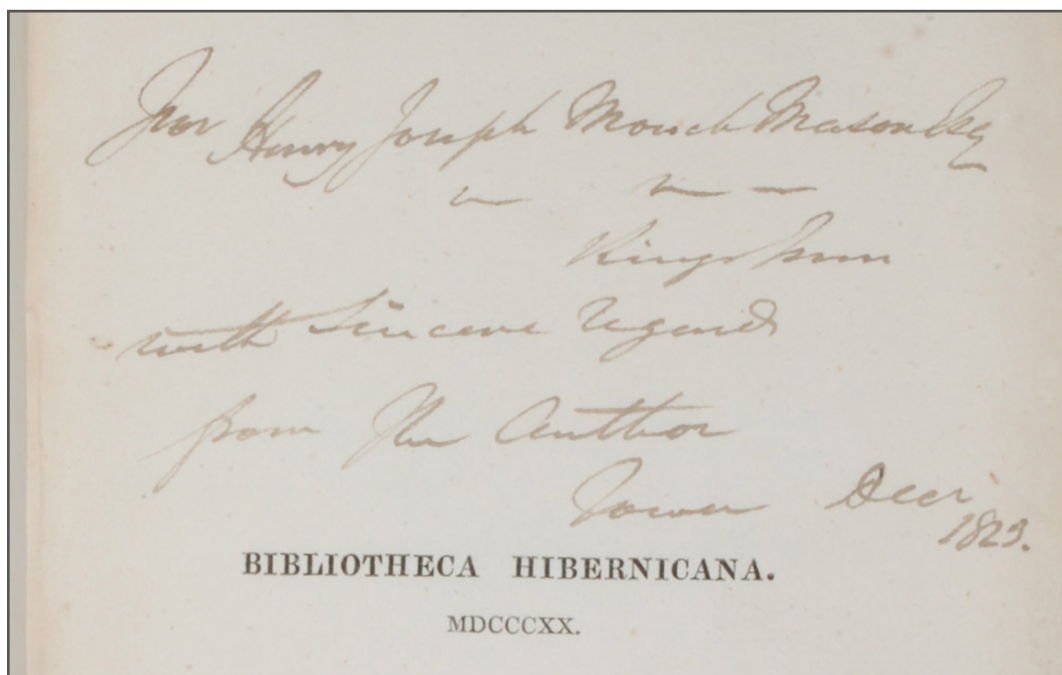 For Henry Joseph Monck Mason Esq
Kings Inns
with Sincere Regards
from The Author
Tower Decr
1823.
BIBLIOTHECA HIBERNICANA.
MDCCCXX.